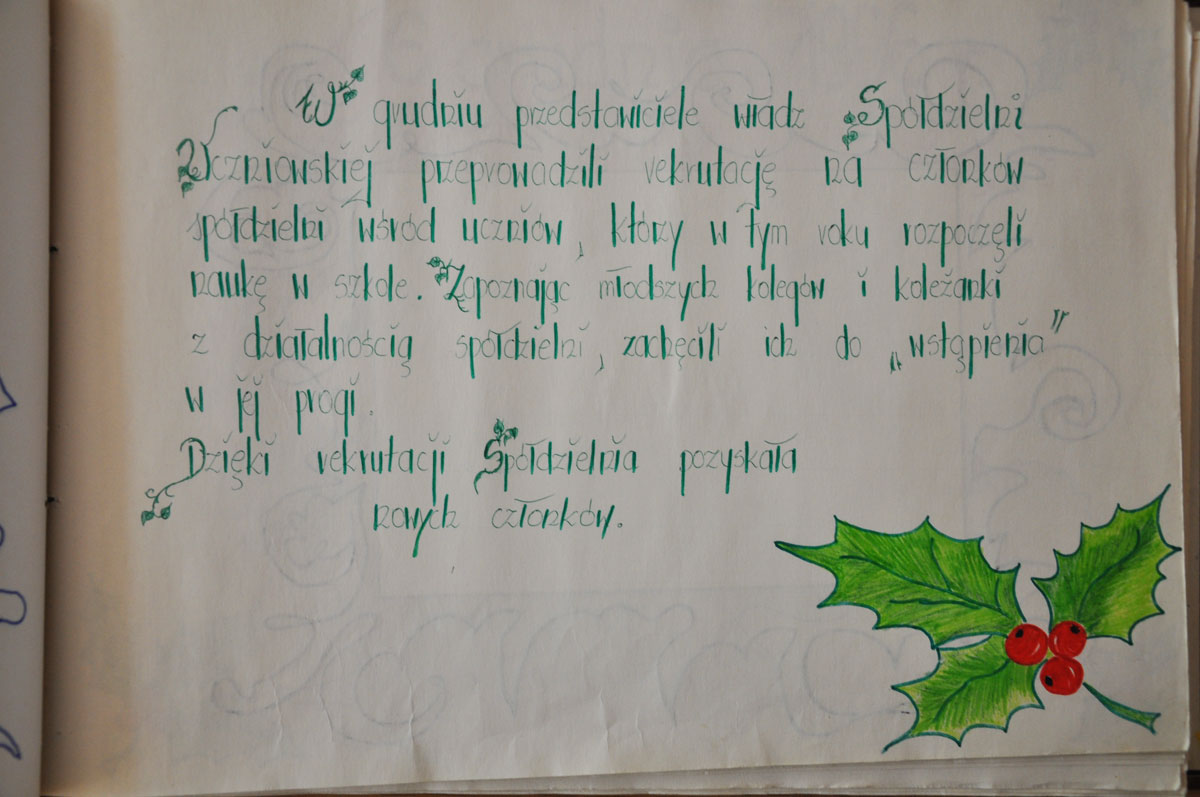 W grudniu przedstawiciele władz Spółdzielni
Uczniowskiej przeprowadzili rekrutację na członków
spółdzielni wśród uczniów, który w tym roku rozpoczęli
naukę w szkole. Zapoznając młodszych kolegów i koleżanki
z działalnością spółdzielni, zachęcili ich do „wstąpienia”
w jej progi.
Dzięki rekrutacji Spółdzielnia pozyskała
nowych członków.